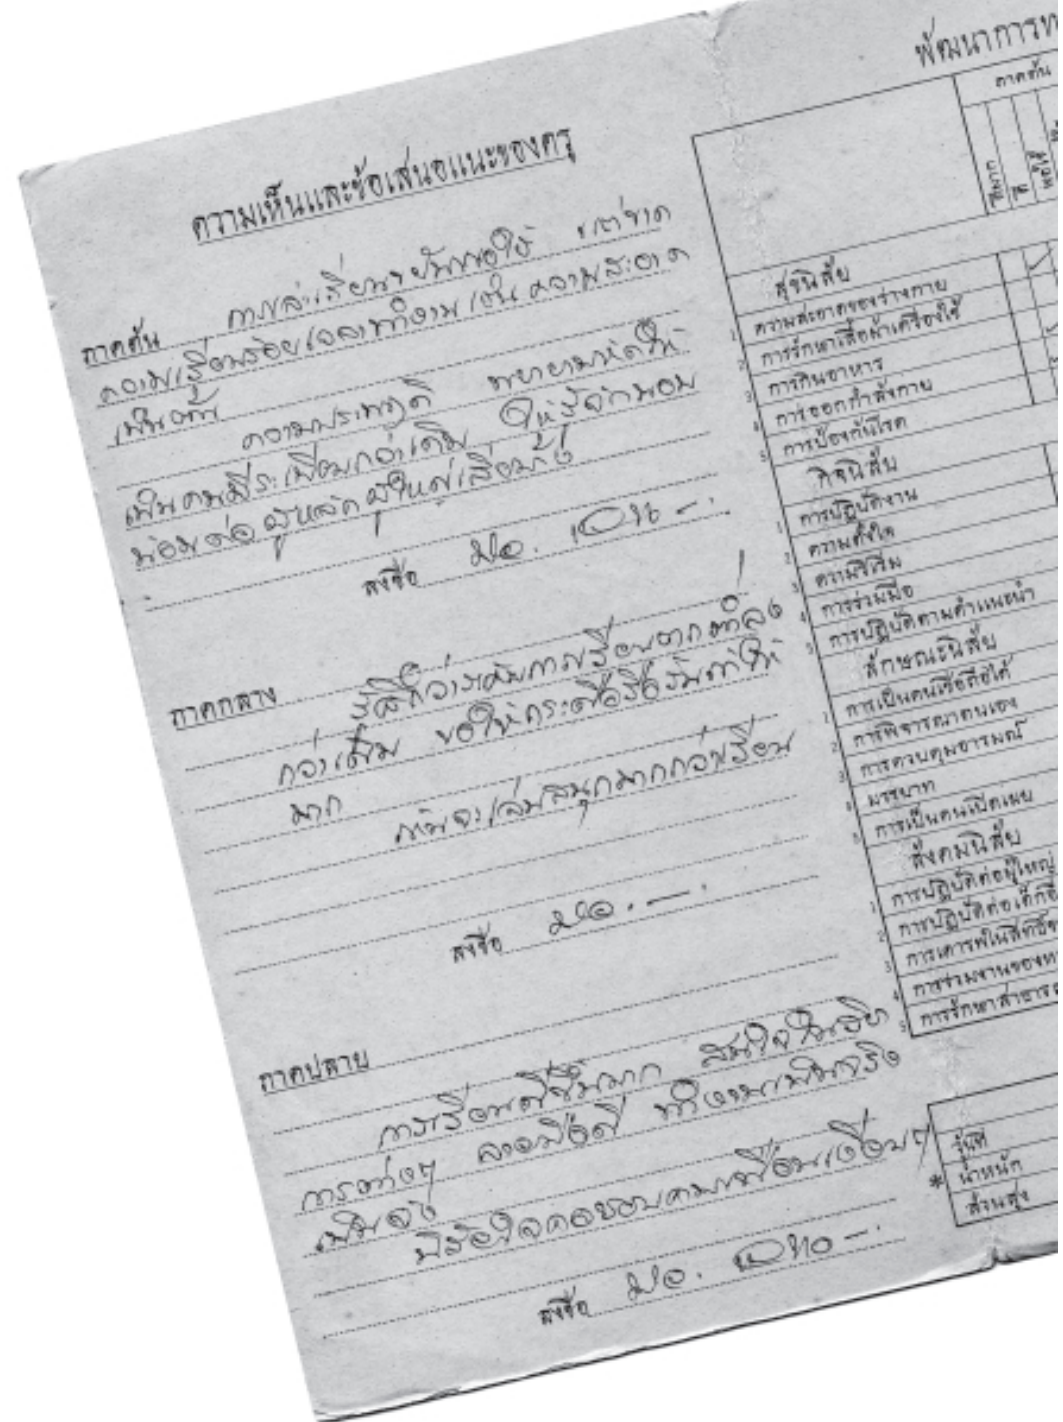 ความเห็นและข้อเสนอแนะของครู
ภาคต้น การเล่าเรียนขยันพอใช้ แต่ขาด
ความเรียบร้อยเวลาทำงาน เช่น ความสะอาด
เป็นต้น
ความประพฤติ พยายามหัดให้
เป็นคนมีระเบียบกว่าเดิม ให้รู้จักนอบ
น้อมต่อผู้หลักผู้ใหญ่เสียบ้าง
ลงชื่อ
ภาคกลาง รู้สึกว่าระดับการเรียนจากต่ำลง
กว่าเดิม ขอให้กระตือรือร้นกว่านี้ให้
มาก
มักจะเล่นสนุกมากกว่าเรียน
ลงชื่อ
ภาคปลาย
การเรียนดีขึ้นมาก สนใจในวิชา
การต่างๆ ลายมือดี ทำงานเป็นจริง
เป็นจัง
มีสิ่งใดคอยถามเพื่อนเรื่อยๆ
ลงชื่อ
พัฒนาการ
ภาคต้น
ดีมาก
ดี
พอใช้
สุขนิสัย
1 ความสะอาดของร่างกาย
2 การรักษาเสื้อผ้าเครื่องใช้
3 การกินอาหาร
4 การออกกำลังกาย
5 การป้องกันโรค
กิจนิสัย
1 การปฏิบัติงาน
2 ความตั้งใจ
3 ความริเริ่ม
4 การร่วมมือ
5 การปฏิบัติตามคำแนะนำ
ลักษณะนิสัย
1 การเป็นคนเชื่อถือได้
2 การพิจารณาตนเอง
3 การควบคุมอารมณ์
4 มรรยาท
5 การเป็นคนเปิดเผย
สังคมนิสัย
1 การปฏิบัติต่อผู้ใหญ่
2 การปฏิบัติต่อเด็ก
3 การเคารพในสิทธิ
4 การร่วมงานของ
5 การรักษาสาธารณ
วันที่
* น้ำหนัก
ส่วนสูง